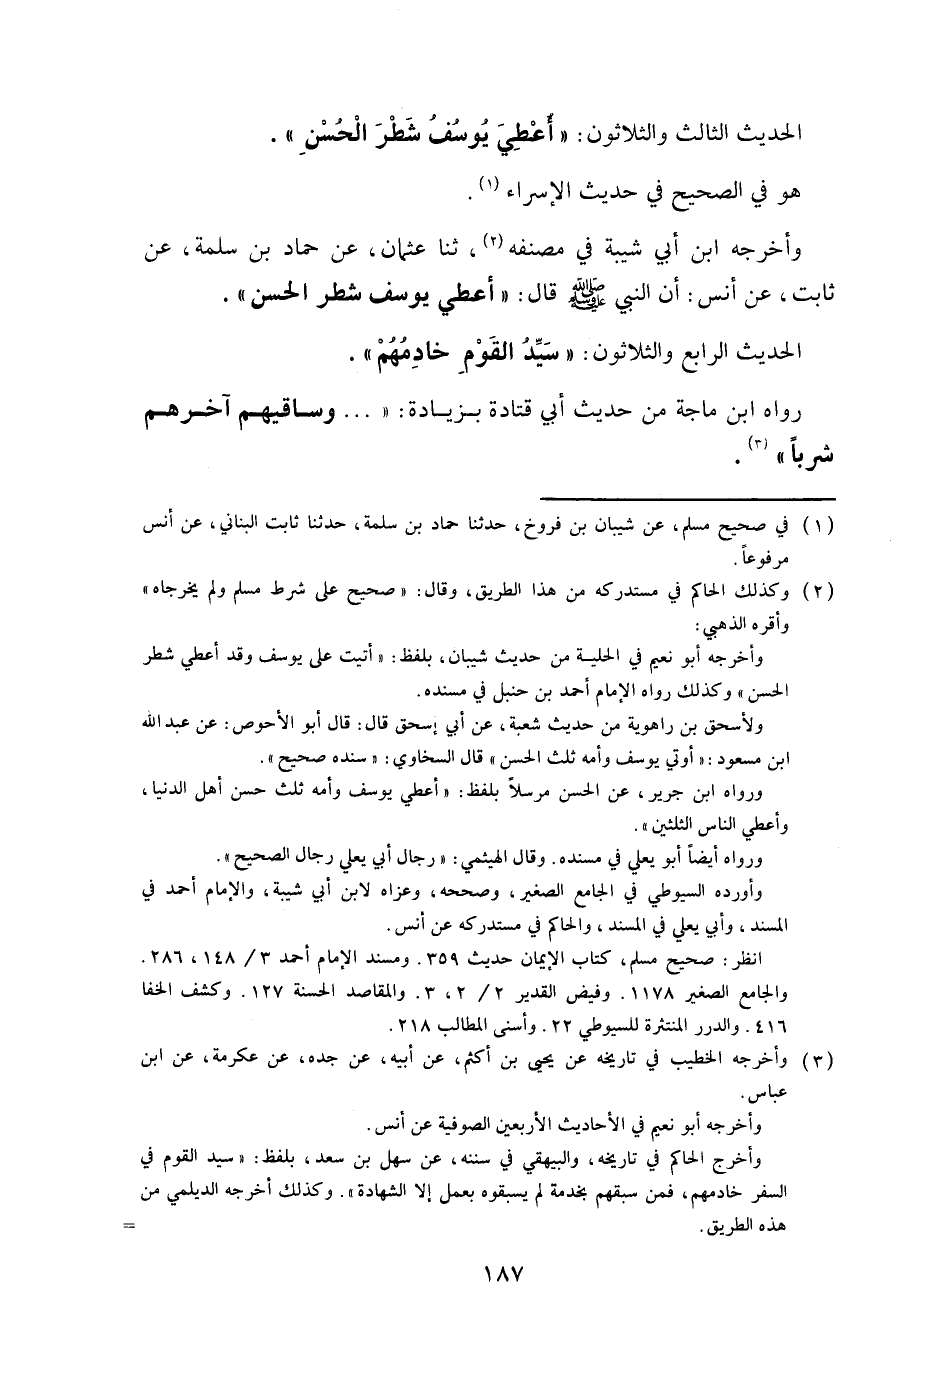 الحديث الثالث والثلاثون: « أُعْطِيَ يُوسُفُ شَطْرَ الْحُسْنِ » .
هو في الصحيح في حديث الإسراء (١) .
وأخرجه ابن أبي شيبة في مصنفه (٢) ، ثنا عثمان، عن حماد بن سلمة، عن
ثابت، عن أنس: أن النبي ﷺ قال: « أعطي يوسف شطر الحسن» .
الحديث الرابع والثلاثون: « سَيِّدُ القَوْمِ خادِمُهُمْ» .
رواه ابن ماجة من حديث أبي قتادة بـزيـادة: « ... وساقيهم آخرهم
شرباً» (٣) .
(١) في صحيح مسلم، عن شيبان بن فروخ، حدثنا حماد بن سلمة، حدثنا ثابت البناني، عن أنس
مرفوعاً.
(٢) وكذلك الحاكم في مستدركه من هذا الطريق، وقال: «صحيح على شرط مسلم ولم يخرجاه»
وأقره الذهبي:
وأخرجه أبو نعيم في الحلية من حديث شيبان، بلفظ: « أتيت على يوسف وقد أعطي شطر
الحسن» وكذلك رواه الإمام أحمد بن حنبل في مسنده.
ولأسحق بن راهوية من حديث شعبة، عن أبي إسحق قال: قال أبو الأحوص: عن عبد الله
ابن مسعود: « أوتي يوسف وأمه ثلث الحسن» قال السخاوي: « سنده صحيح» .
ورواه ابن جرير، عن الحسن مرسلاً بلفظ: « أعطي يوسف وأمه ثلث حسن أهل الدنيا،
وأعطي الناس الثلثين» .
ورواه أيضاً أبو يعلي في مسنده. وقال الهيثمي: « رجال أبي يعلي رجال الصحيح» .
وأورده السيوطي في الجامع الصغير، وصححه، وعزاه لابن أبي شيبة، والإمام أحمد في
المسند، وأبي يعلي في المسند، والحاكم في مستدركه عن أنس.
انظر: صحيح مسلم، كتاب الإيمان حديث ٣٥٩. ومسند الإمام أحمد ٣/ ١٤٨ ، ٢٨٦ .
والجامع الصغير ١١٧٨. وفيض القدير ٢/ ٢ ، ٣. والمقاصد الحسنة ١٢٧. وكشف الخفا
٤١٦. والدرر المنتثرة للسيوطي ٢٢. وأسنى المطالب ٢١٨.
(٣) وأخرجه الخطيب في تاريخه عن يحيى بن أكثم، عن أبيه، عن جده، عن عكرمة، عن ابن
عباس.
وأخرجه أبو نعيم في الأحاديث الأربعين الصوفية عن أنس.
وأخرج الحاكم في تاريخه، والبيهقي في سننه، عن سهل بن سعد، بلفظ: « سيد القوم في
السفر خادمهم، فمن سبقهم بخدمة لم يسبقوه بعمل إلا الشهادة». وكذلك أخرجه الديلمي من
هذه الطريق. =
١٨٧